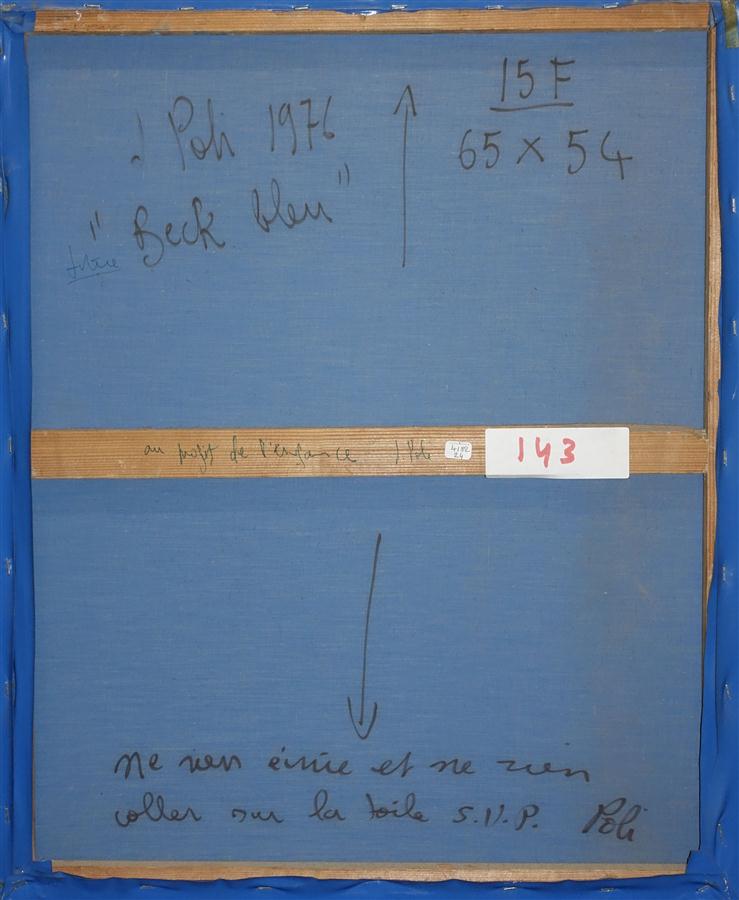 J Poli 1976
15 F
65 x 54
"Beck bleu"
titre
au profit de l'enfance J Poli
143
ne rien écrire et ne rien
coller sur la toile S.V.P. Poli